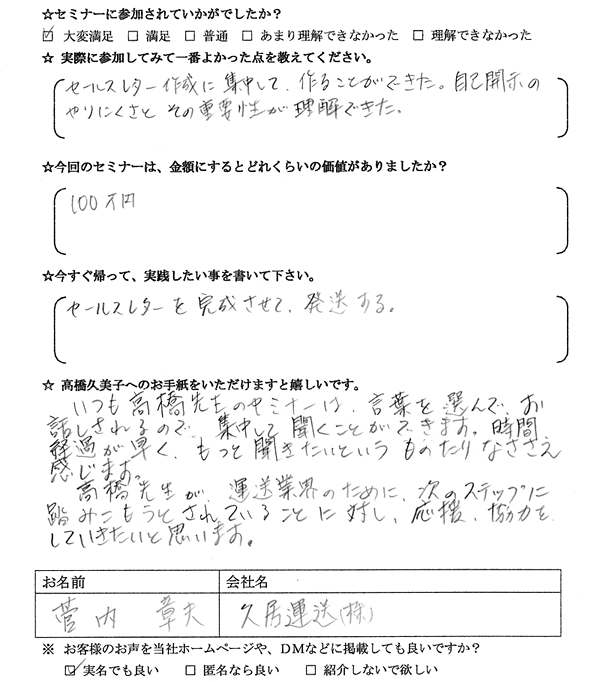 ☆セミナーに参加されていかがでしたか?
☑ 大変満足 □ 満足 □ 普通 □ あまり理解できなかった □ 理解できなかった
☆ 実際に参加してみて一番よかった点を教えてください。
セールスレター作成に集中して、作ることができた。自己開示の
やりにくさと その重要性が理解できた。
☆今回のセミナーは、金額にするとどれくらいの価値がありましたか?
100万円
☆今すぐ帰って、実践したい事を書いて下さい。
セールスレターを完成させて、発送する。
☆ 髙橋久美子へのお手紙をいただけますと嬉しいです。
いつも高橋先生のセミナーは、言葉を選んで、お
話しされるので、集中して聞くことができます。時間
経過が早く、もっと聞きたいという ものたりなささえ
感じます。
高橋先生が、運送業界のために、次のステップに
踏みこもうとされていることに対し、応援、協力を
していきたいと思います。
お名前 会社名
菅内 章夫 久居運送(株)
※ お客様のお声を当社ホームページや、DMなどに掲載しても良いですか?
☑ 実名でも良い □ 匿名なら良い □ 紹介しないで欲しい